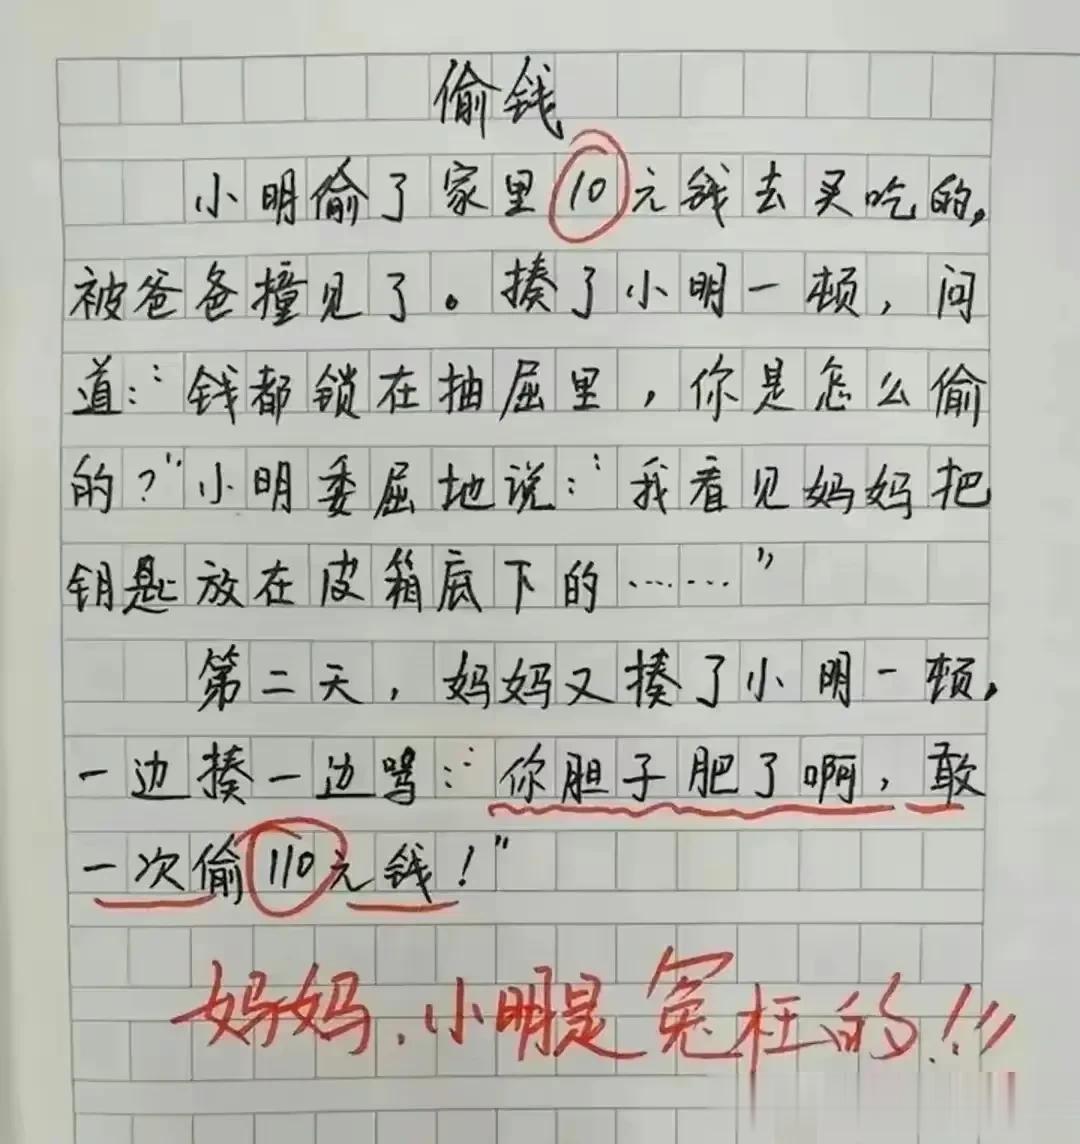 偷钱
小明偷了家里10元钱去买吃的,
被爸爸撞见了。揍了小明一顿,问
道:“钱都锁在抽屈里,你是怎么偷
的?”小明委屈地说:“我看见妈妈把
钥匙放在皮箱底下的……”
第二天,妈妈又揍了小明一顿,
一边揍一边骂:“你胆子肥了啊,敢
一次偷110元钱!”
妈妈,小明是冤枉的!!!